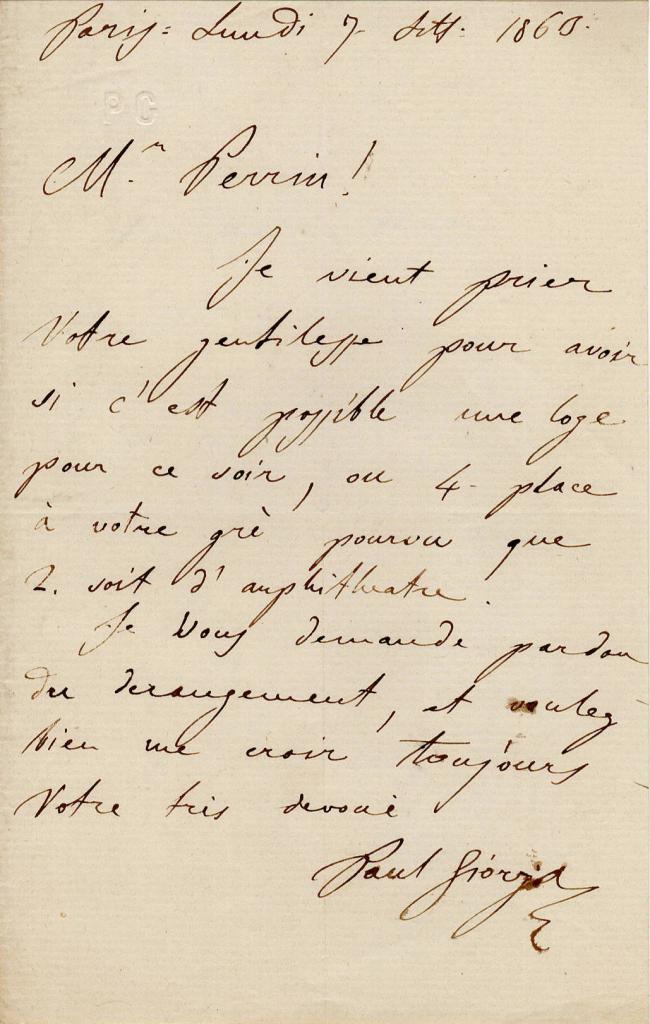 Paris = Lundi 7 Sett. 1863.
PG
M.r Perrin!
Je vient prier
Votre gentilesse pour avoir
si c'est possible une loge
pour ce soir, ou 4- place
à votre grè pourvu que
2. soit d'amphitheatre.
Je Vous demande pardon
du derangement, et voulez
bien me croir toujours
Votre tris devoué
Paul